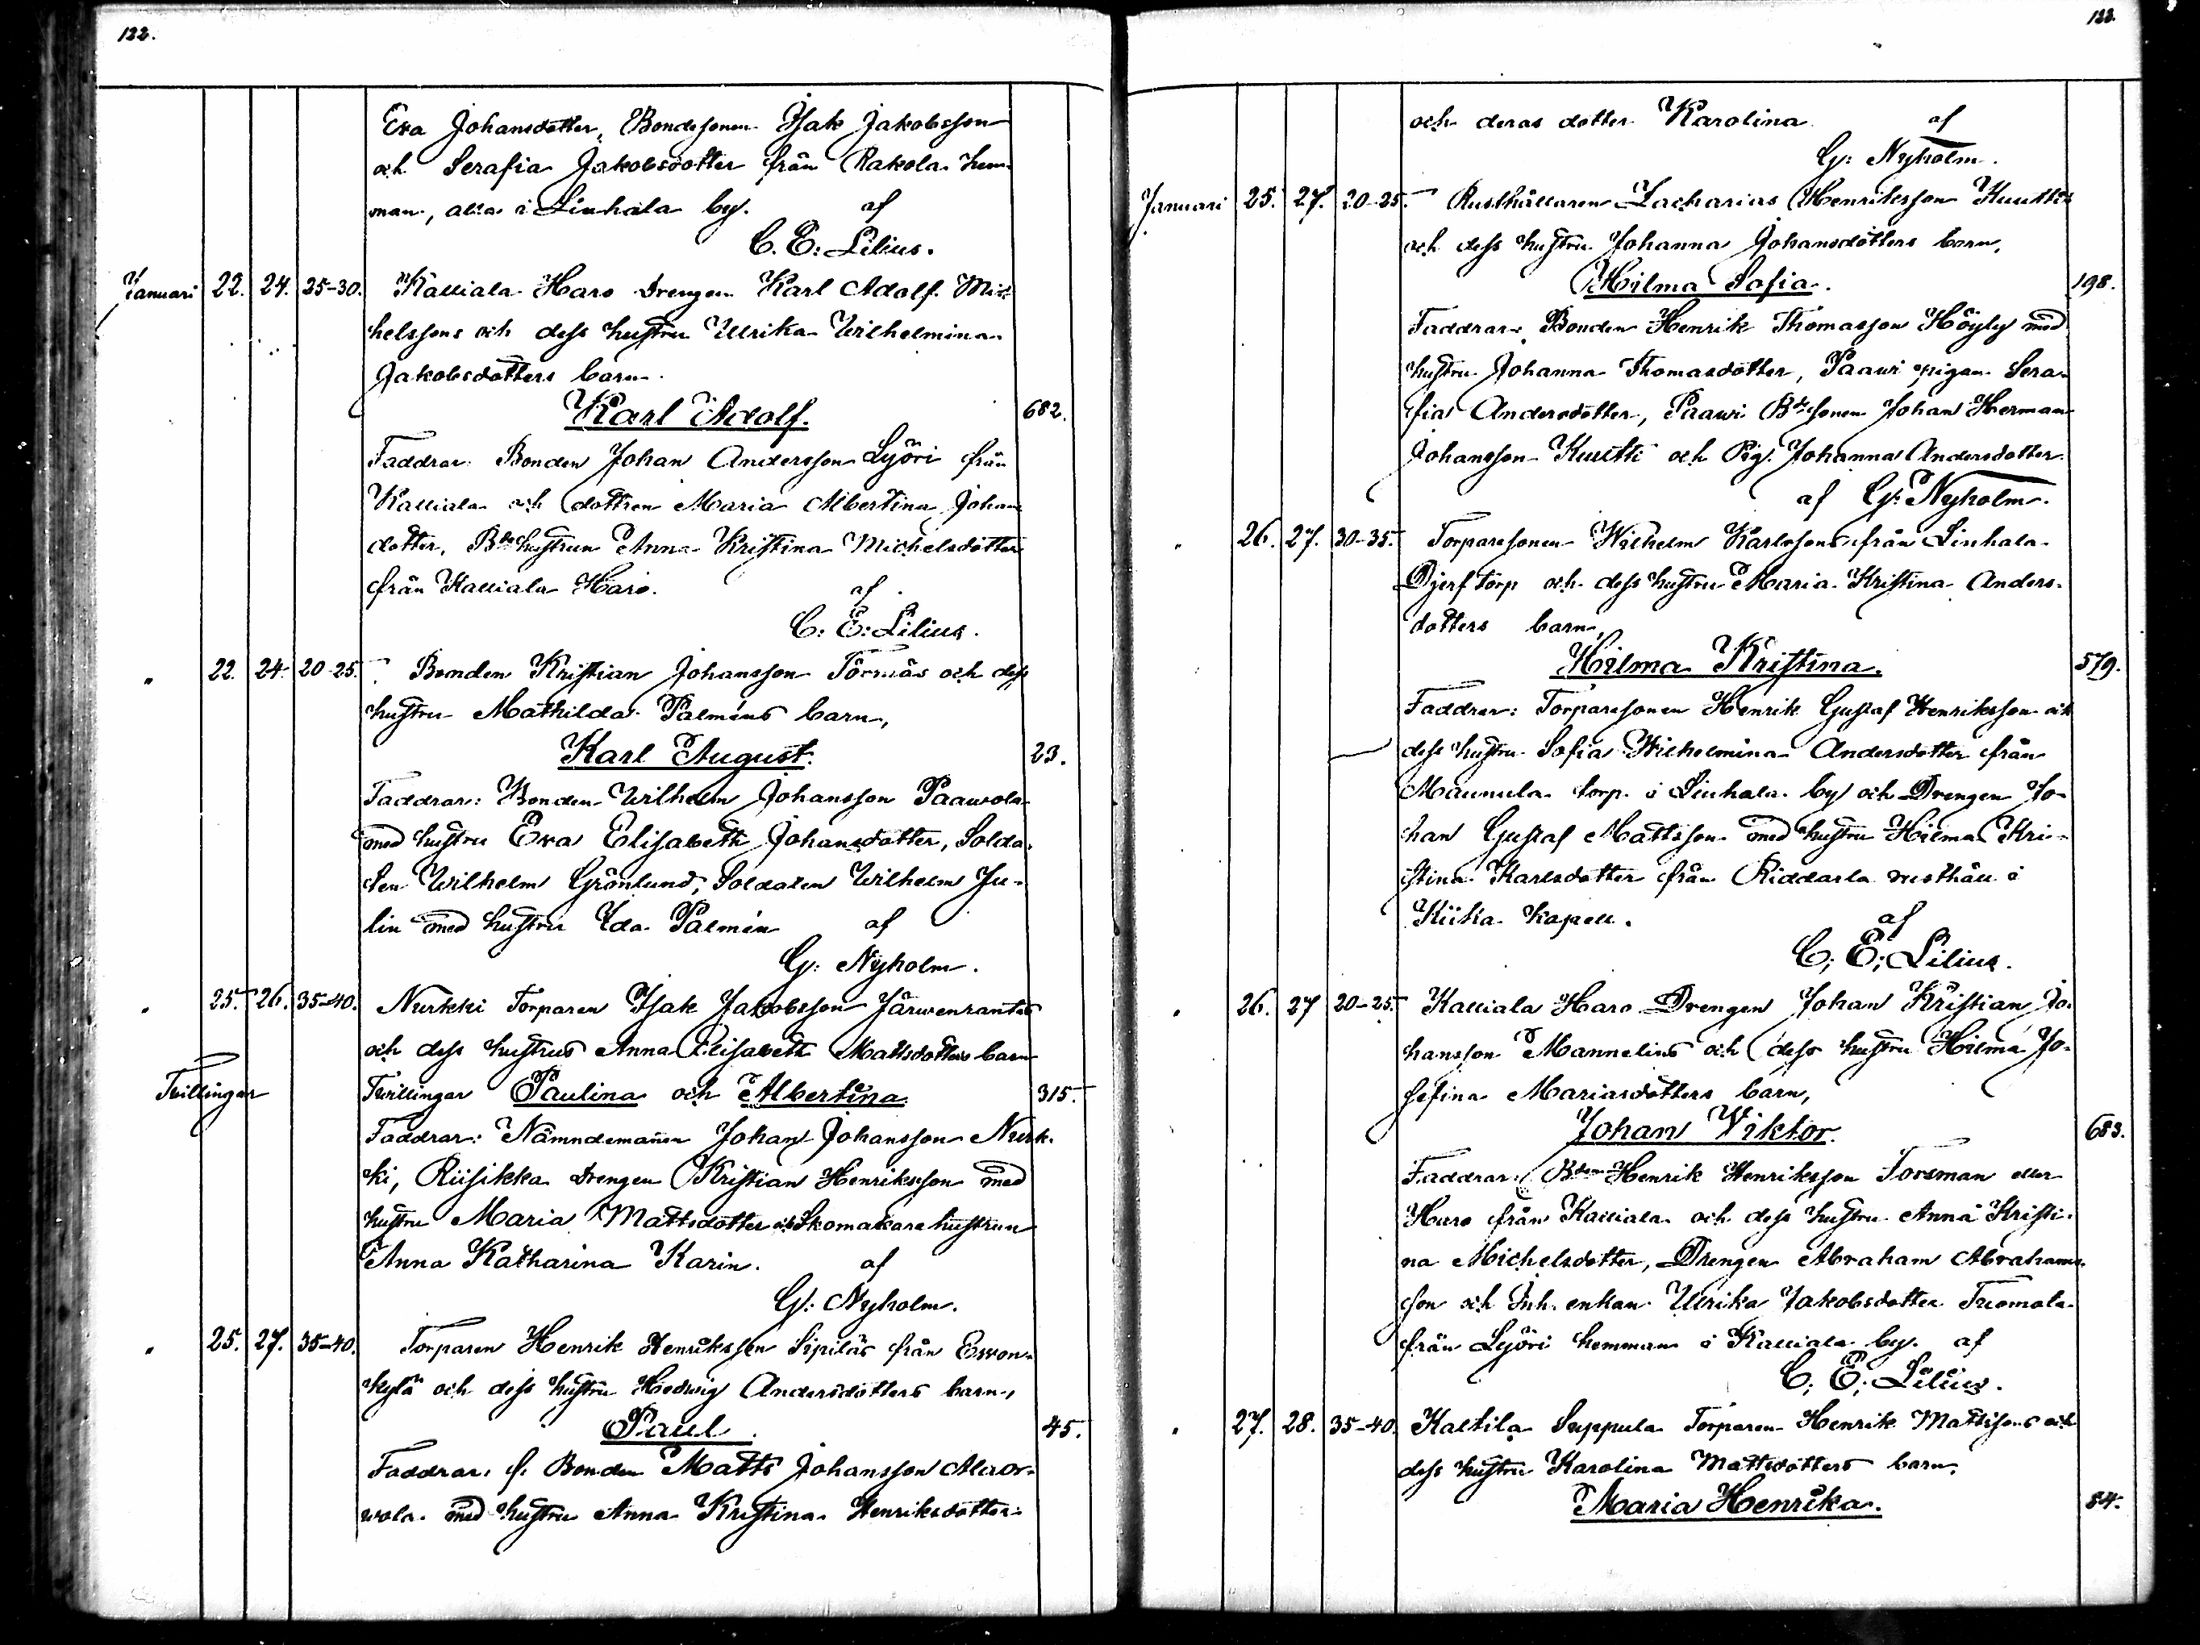 122.
Eva Johansdotter, Bondesonen Isak Jakobsson
och Serafia Jakobsdotter från Rakola hem-
man, alla i Liuhala by. af
C. E: Lilius.
Januari 22. 24. 25-30. Kalliala Haro Drengen Karl Adolf Mi-
helssons och dess hustru Ulrika Wilhelmina
Jakobsdotters barn
Karl Adolf. 682.
Faddrar: Bonden Johan Andersson Lyöri från
Kalliala och dottren Maria Albertina Johans
dotter, Bde hustrun Anna Kristina Michelsdotter
från Kalliala Haro. af
C: E: Lilius.
" 22. 24. 20-25. Bonden Kristian Johansson Törmäs och dess
hustru Mathilda Palméns barn,
Karl August. 23.
Faddrar: Bonden Wilhelm Johansson Paawola
med hustru Eva Elisabeth Johansdotter, Solda-
ten Wilhelm Grönlund, Soldaten Wilhelm Ju-
lin med hustru Ida Palmén af
G: Nyholm.
" 25. 26. 35-40. Nurkki Torparen Isak Jakobsson Järwenrantas
och dess hustrus Anna Elisabeth Mattsdotters barn
Tvillingar Tvillingar Paulina och Albertina 315.
Faddrar: Nämndemannen Johan Johansson Nurk-
ki, Riisikka Drengen Kristian Henriksson med
hustru Maria Mattsdotter och Skomakare hustrun
Anna Katharina Karin. af
G: Nyholm.
" 25. 27. 35-40. Torparen Henrik Henriksson Sipiläs från Ewon-
kylä och dess hustru Hedwig Andersdotters barn,
Paul. 45.
Faddrar: f. Bonden Matts Johansson
wola med hustru Anna Kristina Henriksdotter
122.
och deras dotter Karolina af
G: Nyholm.
Januari 25. 27. 20-25. Rusthållaren Zacharias Henriksson Kuuttis
och dess hustru Johanna Johansdotters barn,
Hilma Sofia. 198.
Faddrar: Bonden Henrik Thomasson Höyly med
hustru Johanna Thomasdotter, Paawi pigan Sera-
fia Andersdotter, Paawi Bdesonen Johan Herman
Johansson Kuutti och Pig. Johanna Andersdotter
af G: Nyholm.
" 26. 27. 30-35. Torparesonen Wilhelm Karlssons från Liuhala
Djerf torp och dess hustru Maria Kristina Anders-
dotters barn,
Hilma Kristina. 579.
Faddrar: Torparesonen Henrik Gustaf Henriksson och
dess hustru Sofia Wilhelmina Andersdotter från
Maunula torp i Liuhala by och Drengen Jo-
han Gustaf Mattsson med hustru Hilma Kri-
stina Karlsdotter från Riddarla rusthåll i
Kiika Kapell. af
C; E; Lilius.
" 26. 27 20-25. Kalliala Haro Drengen Johan Kristian Jo-
hansson Mannelins och dess hustru Hilma Jo-
sefina Mariasdotters barn,
Johan Viktor. 683.
Faddrar: Bden Henrik Henriksson Forsman eller
Haro från Kalliala och dess hustru Anna Kristi-
na Michelsdotter, Drengen Abraham Abrahams-
son och Inh. enkan Ulrika Jakobsdotter Tuomola
från Lyöri hemman i Kalliala by. af
C; E; Lilius.
" 27. 28. 35-40. Kaltila Suppula Torparen Henrik Mattssons och
dess hustru Karolina Mattsdotters barn,
Maria Henrika. 84.